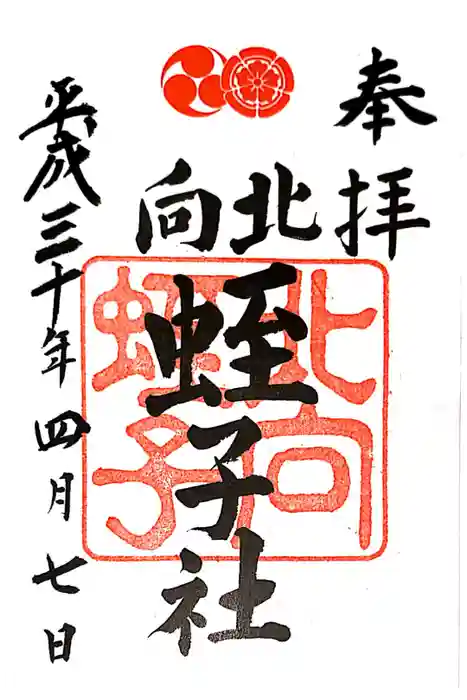 奉拝
北向
蛭子社
平成三十年四月七日
北向
蛭子